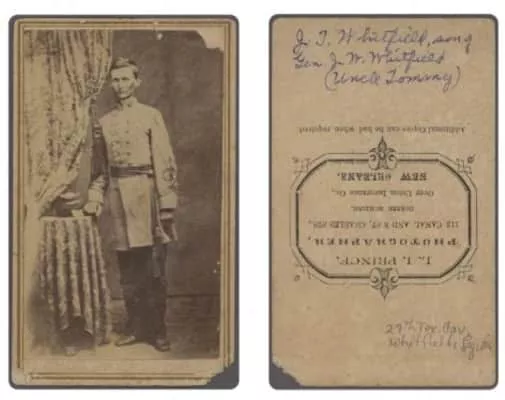 J. T. Whitfield, son of
Gen. J. W. Whitfield
(Uncle Tommy)
Additional Copies can be had when required
L. I. PRINCE,
PHOTOGRAPHER,
112 CANAL AND 8 ST. CHARLES STS.,
DOUBLE BUILDING,
Over Union Insurance Co.,
NEW ORLEANS.
27th Tex. Cav.
Whitfield's